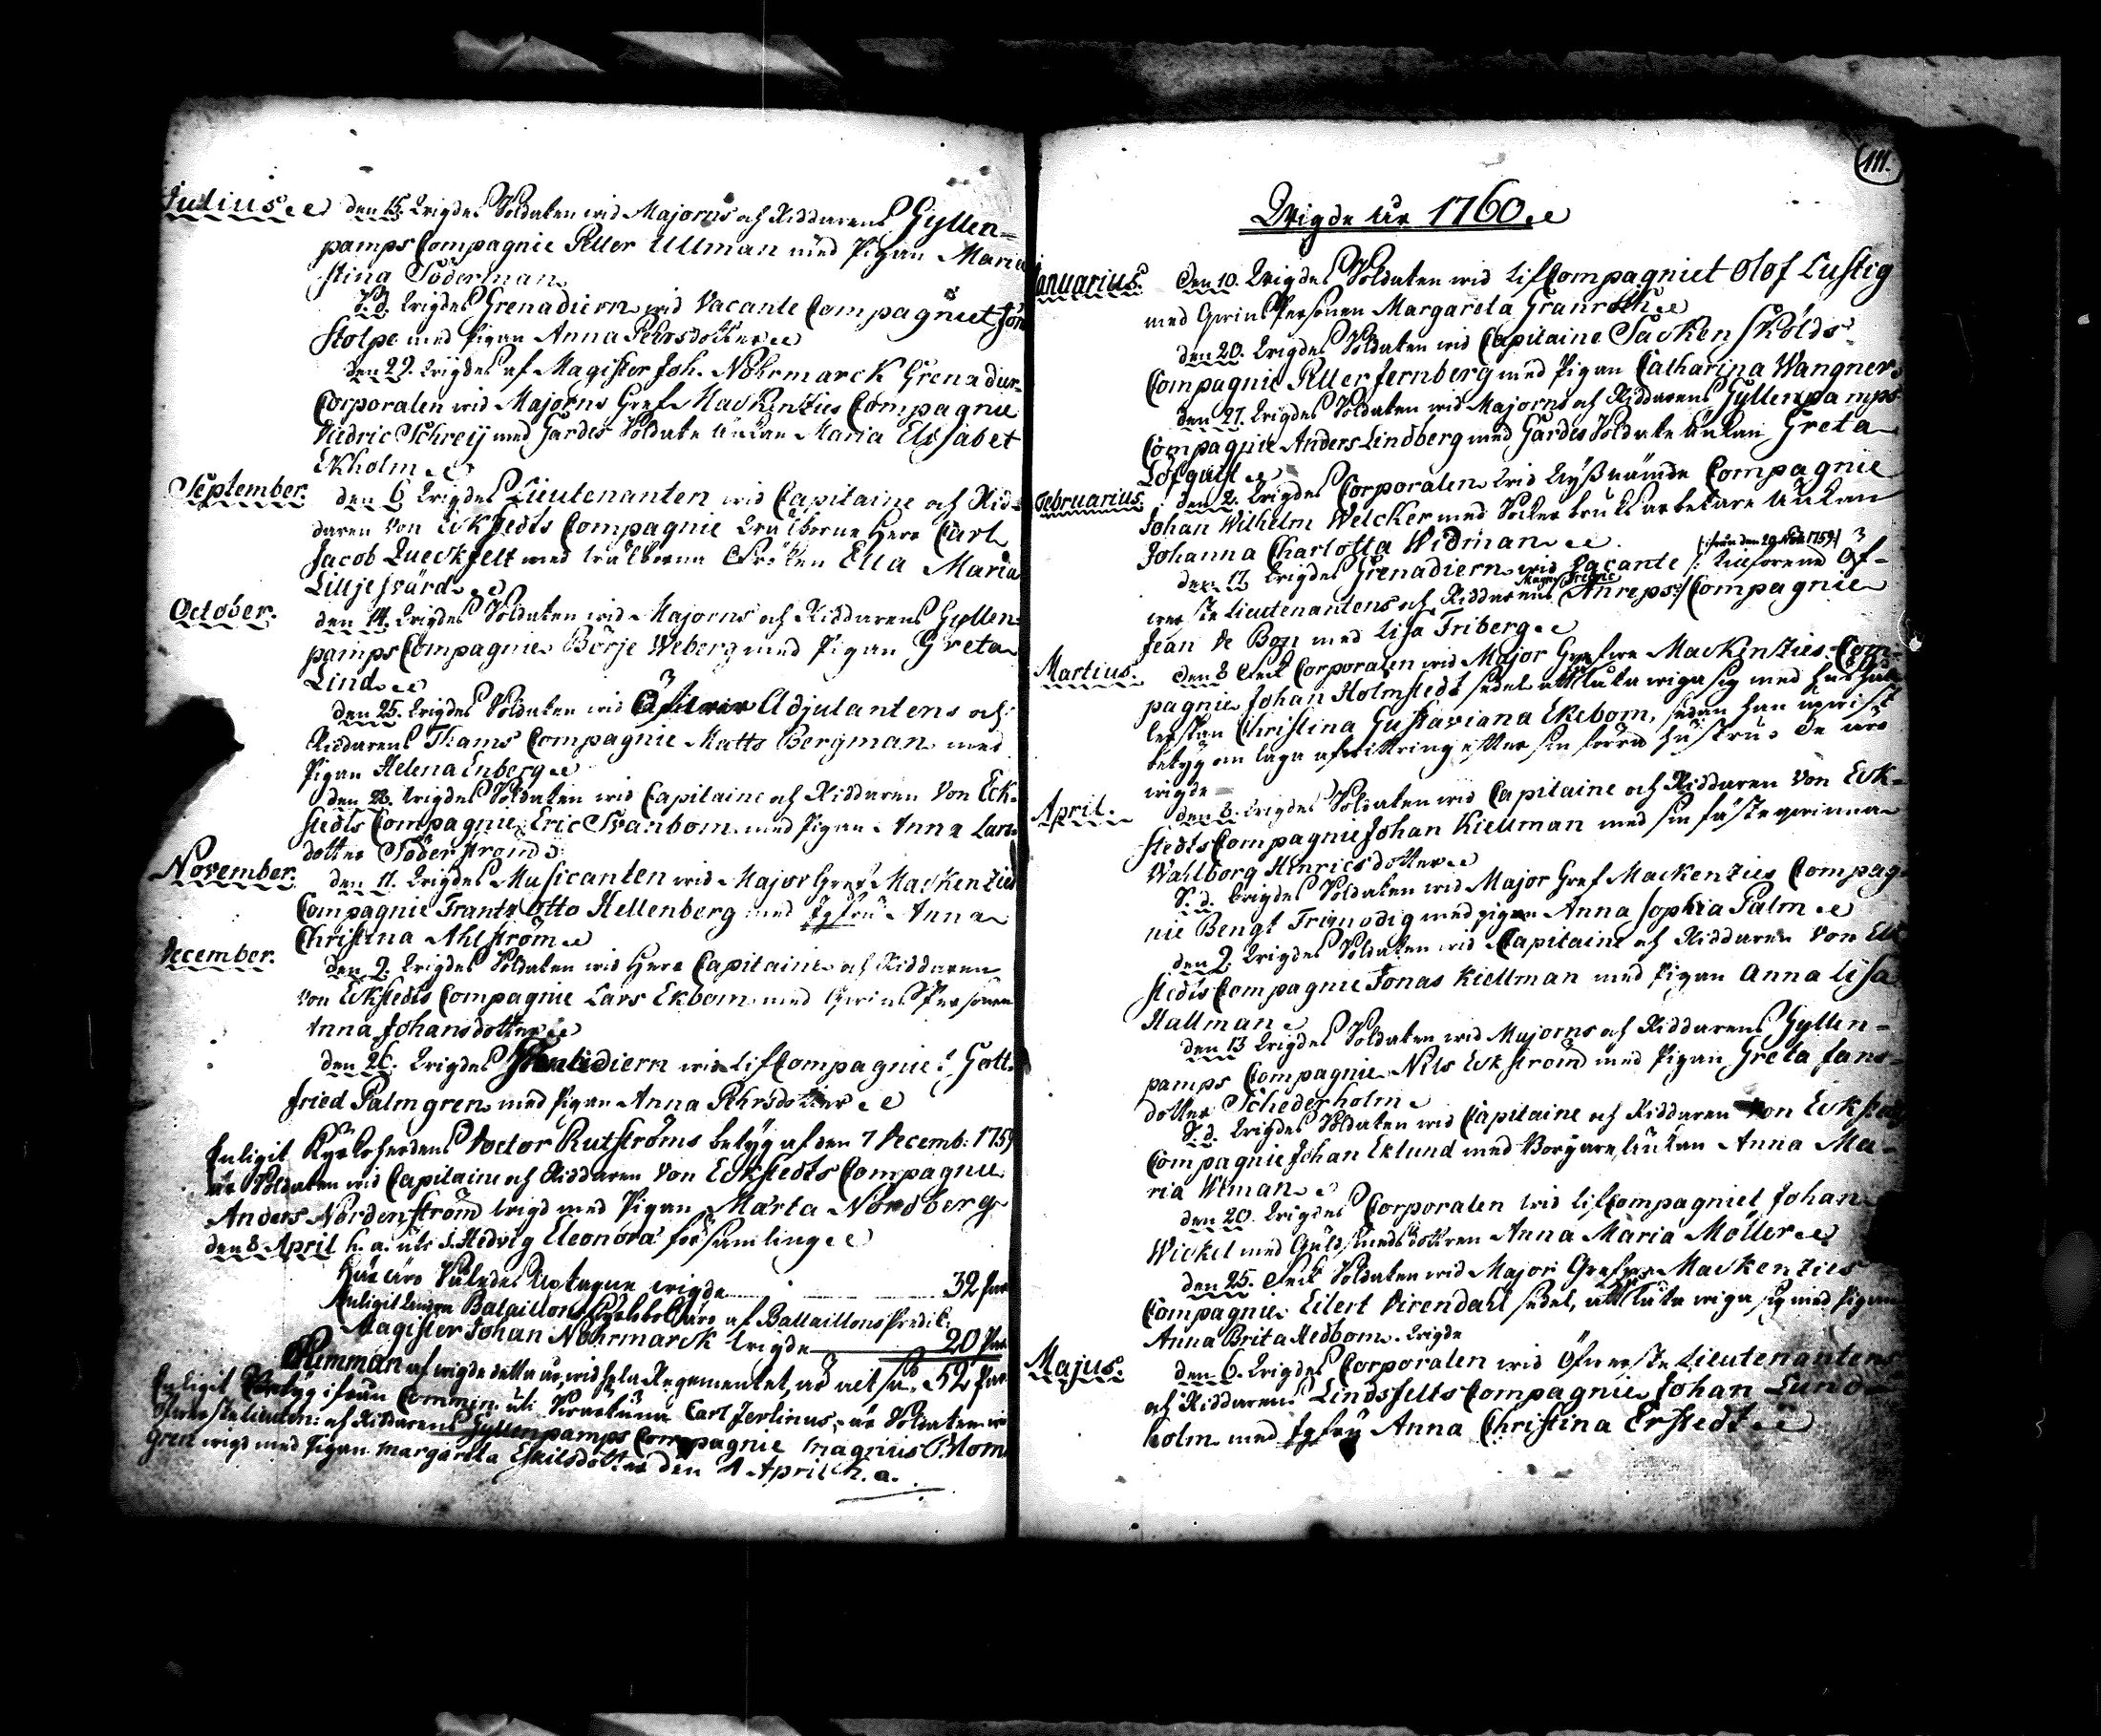 Julius. den 15. Wigdes Soldaten wid Majorns och Riddarens Gyllen=
pamps Compagnie Petter Ullman med Pigan Maria
Stina Söderman
S. d. Wigdes Grenadiern wid Vacante Compagniet Jön
Stolpe med Pigan Anna Pehrsdotter
den 22. Wigdes af Magister Joh. Nohrmarck Grenadier
Corporalen wid Majorns Gref Mackenzies Compagnie
Didric Schreij med Gardes Soldate Änkan Maria Elisabet
Ekholm
September. den 6 Wigdes Lieutenanten wid Capitaine och Rid=
daren von Eckstedts Compagnie Wälborne Herr Carl
Jacob Queckfelt med Wälborna Fröken Ella Maria
Lilljesvärd
October. den 14. Wigdes Soldaten wid Majorns och Riddarens Gyllen=
pamps Compagnie Börje Weberg med Pigan Greta
Lind
den 25. Wigdes Soldaten wid Adjutantens och
Riddarens Thams Compagnie Matts Bergman med
Pigan Helena Enberg
den 28. Wigdes Soldaten wid Capitaine och Riddaren Von Eck=
stedts Compagnie Eric Svanbom med Pigan Anna Lars
dotter Söderström
November. den 11. Wigdes Musicanten wid Major Gref Mackenzies
Compagnie Frantz Otto Hellenberg med Jgfru Anna
Christina Ahlström
December. den 2. Wigdes Soldaten wid Herr Capitaine och Riddaren
von Eckstedts Compagnie Lars Ekbom med Qwins Personen
Anna Johansdotter
den 26. Wigdes Grenadiern wid Lif Compagniet Gott=
fried Palmgren med Pigan Anna Pehrsdotter
Enligit Kyrkoherdens Doctor Rutströms betyg af den 7 Decemb: 1759
är Soldaten wid Capitaine och Riddaren Von Eckstedts Compagnie
Anders Nordenström wigd med Pigan Marta Nordberg
den 8 April h. a. uti S. Hedvig Eleonora församling
Här äro således antagne wigde 32 par
Enligit Bataillons äro af Battaillons Predik.
Magister Johan Nohrmarck Wigde 20 par
Summan af wigde detta år wid hela Regementet, är altså 52 par
Enligit Betyg ifrån Commin: uti Carl Jerlinus, är Soldaten wid
Öfwerste Lieuten: och Riddarens Gyllenpamps Compagnie Magnus Blom
gren wigd med Pigan Margareta Eskilsdotter den 1 April h. a.
111.
Wigde År 1760
Januarius. den 10. Wigdes Soldaten wid Lif Compagniet Olof Lustig
med Qwins Personen Margareta Granroth
den 20. Wigdes Soldaten wid Capitaine Sackenskölds
Compagnie Petter Fernberg med Pigan Catharina Wangners
den 27. Wigdes Soldaten wid Majorns och Riddarens Gyllenpamps
Compagnie Anders Lindberg med Gardes Soldate Änkan Greta
Löfquist
Februarius. den 2. Wigdes Corporalen wid nämde Compagnie
Johan Wilhelm Welcker med Sockerbruks arbetare Änkan
Johanna Charlotta Widman
(ifrån den 29 Nov. 1759)
den 17 Wigdes Grenadiern wid Vacante /: Öf=
werste Lieutenantens och Riddarens Anreps:/ Compagnie
Jean de Bon med Lisa Friberg
Martius. den 8 fick Corporalen wid Major Grefwe Mackenzies Com=
pagnie Johan Holmstedt sedel att låta wiga sig med
Christina Gustaviana Ekebom, sedan han upwist
betyg om laga afwittring efter sin förra Hustru. De äro
wigde
April. den 8. Wigdes Soldaten wid Capitaine och Riddaren Von Eck=
stedts Compagnie Johan Kiellman med sin fästeqwinna
Wahlborg Hinricsdotter
S. d. Wigdes Soldaten wid Major Gref Mackenzies Compag=
nie Bengt Frimodig med pigan Anna Sophia Palm
den 9. Wigdes Soldaten wid Capitaine och Riddaren Von Eck
stedts Compagnie Jonas Kiellman med Pigan Anna Lisa
Hallman
den 13 Wigdes Soldaten wid Majorns och Riddarens Gyllen=
pamps Compagnie Nils Eckström med Pigan Greta Jans=
dotter Schederholm
S. d. Wigdes Soldaten wid Capitaine och Riddaren Von Eckstedts
Compagnie Johan Eklund med Borgare Änkan Anna Ma=
ria Wiman
den 20. Wigdes Corporalen wid Lif Compagniet Johan
Wickel med Guldsmeds dottren Anna Maria Möller
den 25. fick Soldaten wid Major Grefwe Mackenzies
Compagnie Eilert Direndahl sedel, att låta wiga sig med Pigan
Anna Brita Hedbom. Wigde
Majus. den 6. Wigdes Corporalen wid Öfwerste Lieutenantens
och Riddarens Lindsfelts Compagnie Johan Lund=
holm med Jgfru Anna Christina Erstedt